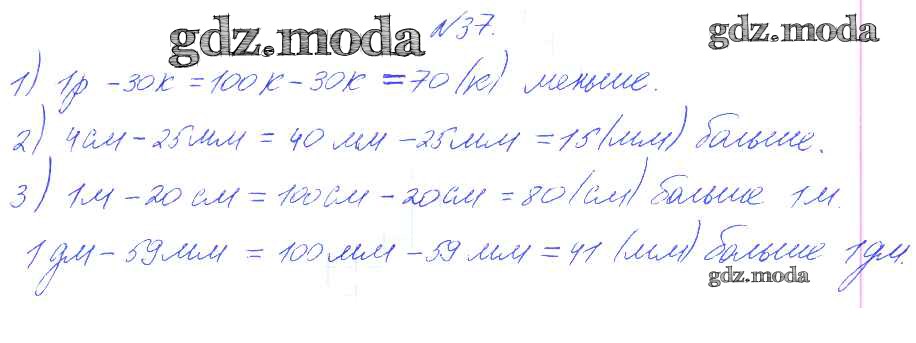 gdz.moda №37. gdz.moda
1) 1р - 30к = 100к - 30к = 70 (к) меньше.
2) 4см - 25мм = 40 мм - 25мм = 15 (мм) больше.
3) 1м - 20 см = 100см - 20см = 80 (см) больше 1м.
1дм - 59мм = 100мм - 59 мм = 41 (мм) больше 1дм.
gdz.moda